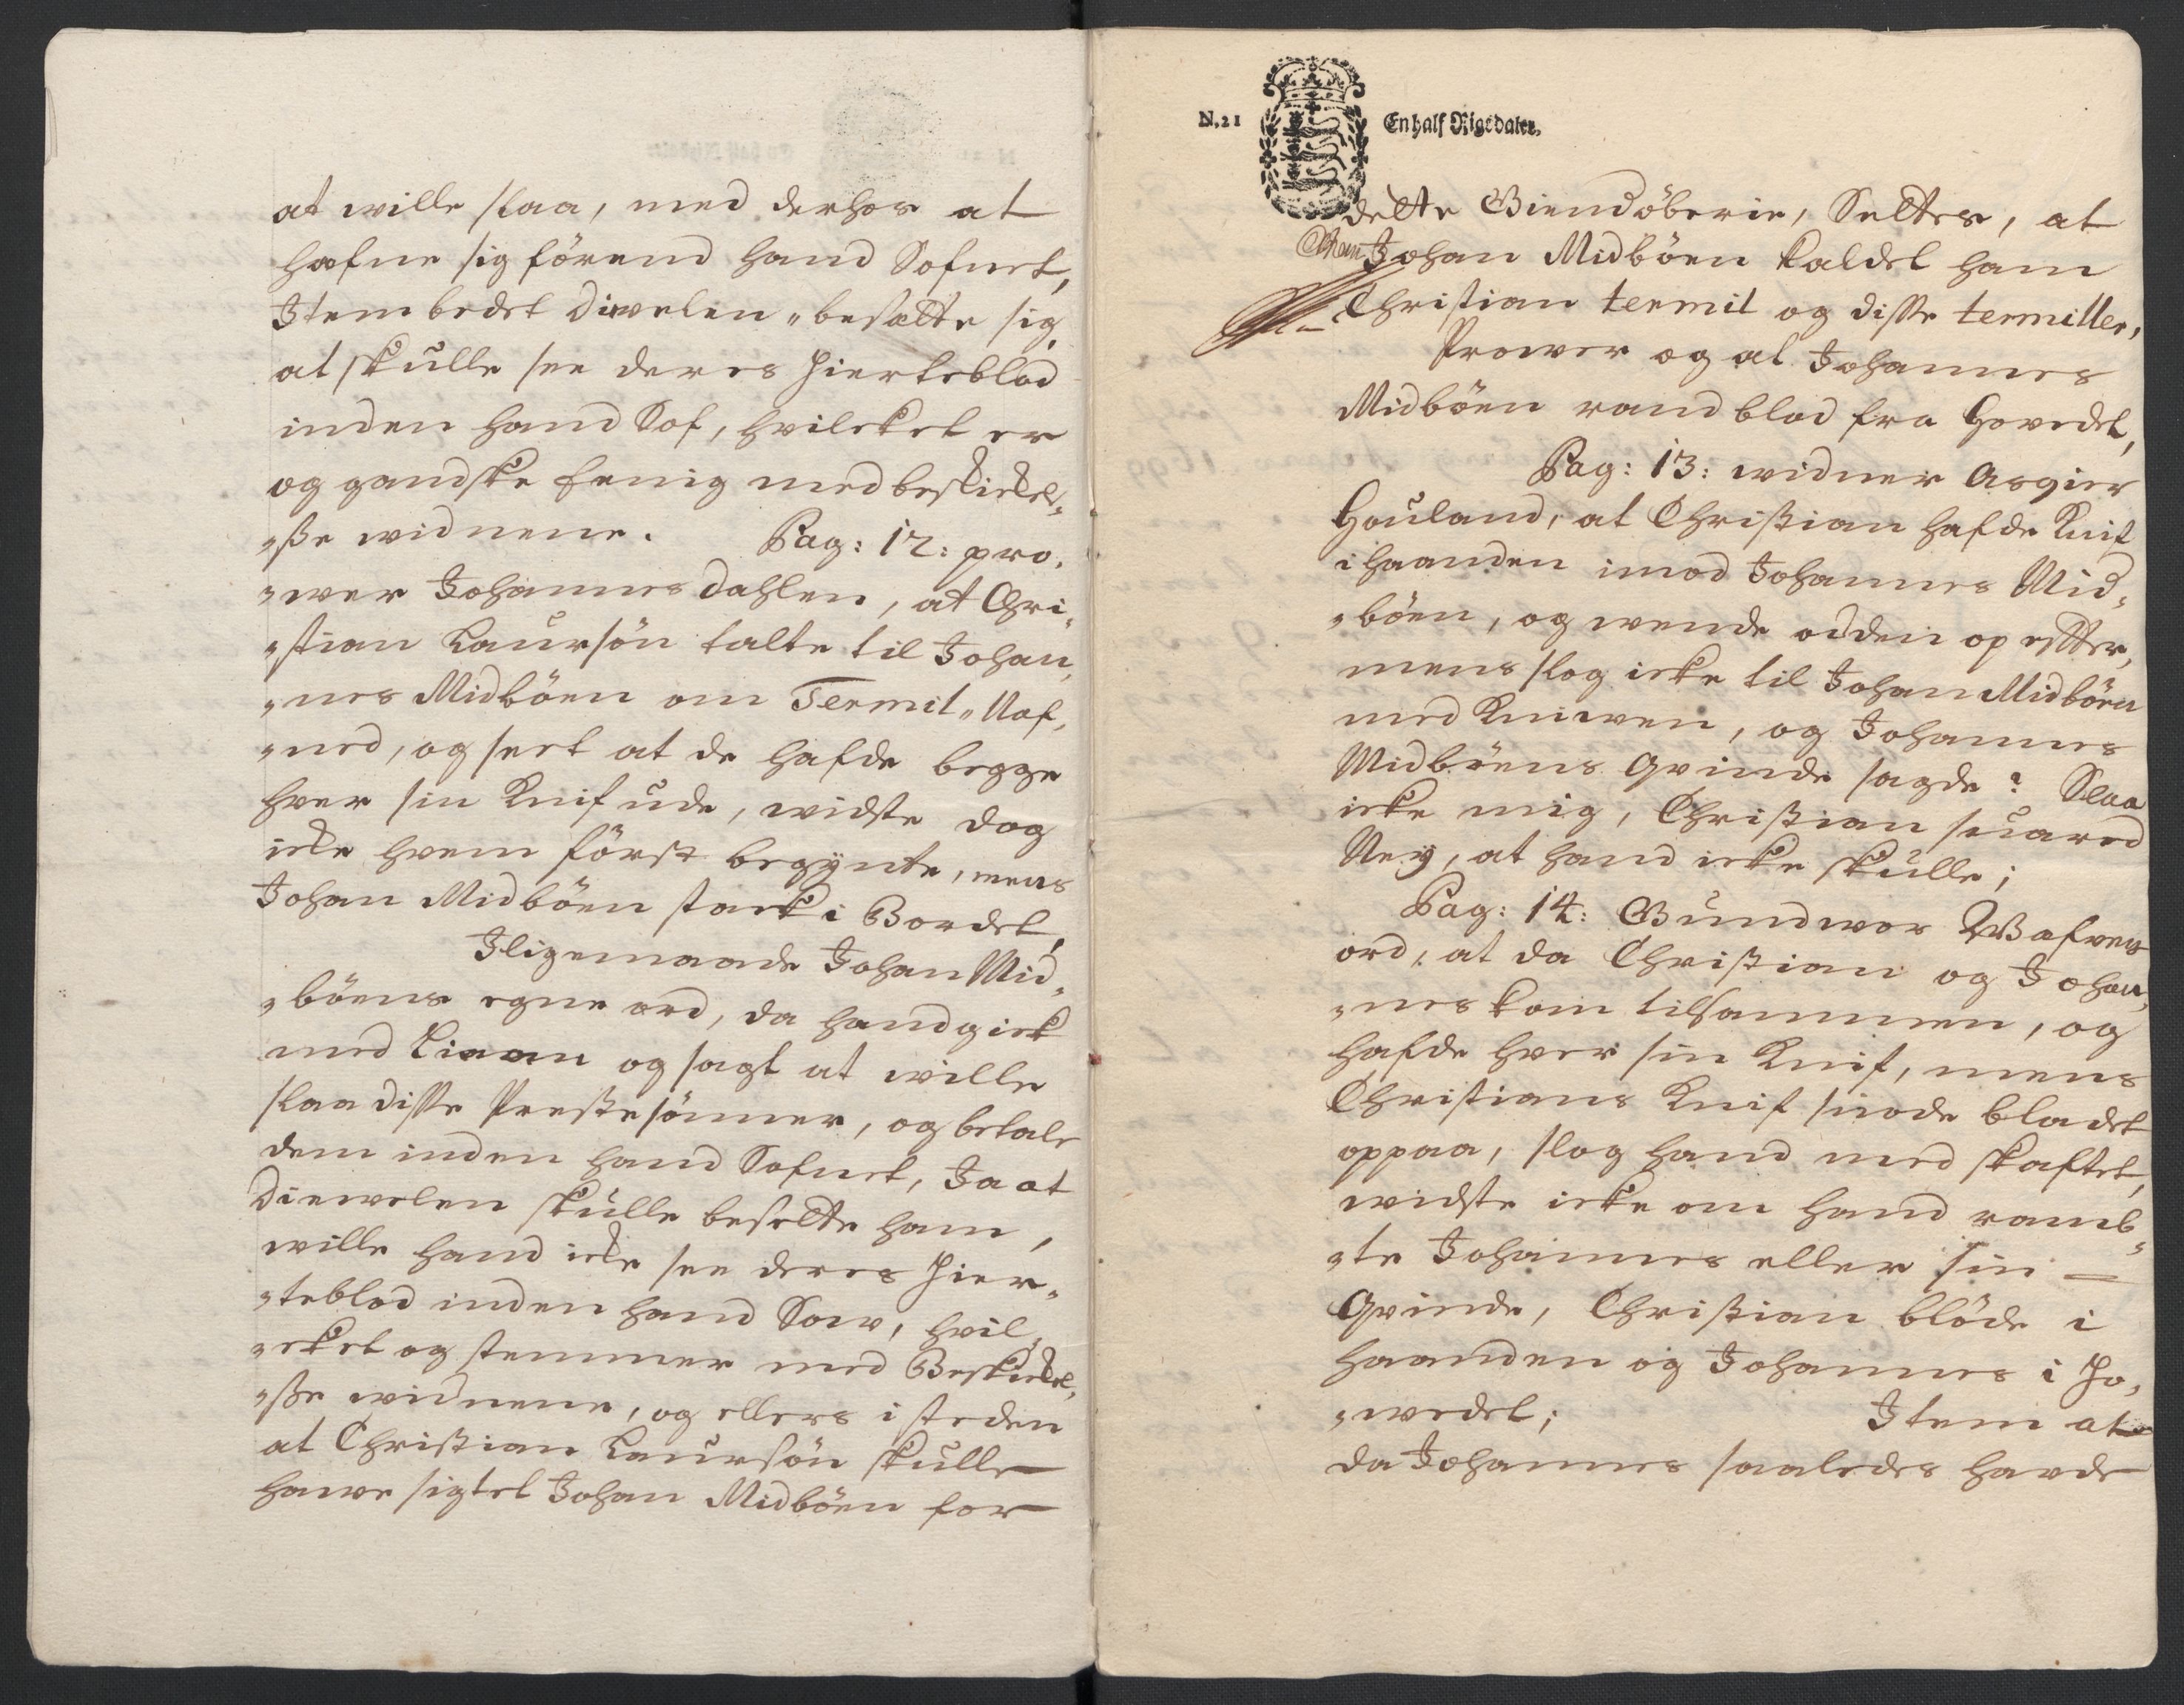 at wille slaa, med derhos at
hafne sig förend hand Sofnet,
Item bedet diwelen „besatte sig
at skulle see deres Hierteblod
inden hand Sof, hvilcket er
og gandske eenig med beskickel„
„ße widnene. Pag: 12: pro„
„wer Johannes Dahlen, at Chri„
„stian Laursön talte til Johan„
„nes Midböen om Termit „Naf„
„ned, og seet at de hafde begge
hver sin Knif ude, widste dog
icke hvem först begynte, mens
Johan Midböen stack i Bordet,
Iligemaade Johan Mid„
„böens egne ord, da hand gick
med Liaan og sagt at wille
slaa disse Prestesönner, og betale
dem inden hand Sofnet, Ja at
Diewelen skulle besette ham,
wille hand icke see deres Hier„
„teblod inden hand Sow, hvil„
„cket og stemmer med Beskickel„
„ße widnene, og ellers i steden
at Christian Laursön skulle
hawe sigtet Johan Midböen for
N.21 En half Rigsdaler.
dette Giendöberie, Settes, at
Johan Midböen kaldet ham
Christian termit og disse termitter,
Prower og at Johannes
Midböen rand blod fra Hovedet,
Pag: 13: widner Asgier
Houland, at Christian hafde Knif
i haanden imod Johannes Mid„
„böen, og wende odden op efter,
mens slog icke til Johan Midböen
med Kniwen, og Johannes
Midböens Qvinde sagde: Slaa
icke mig, Christian suared
Ney, at hand icke skulle;
Pag: 14: Gundwor
ord, at da Christian og Johan„
„nes kom tilsammen, og
hafde hver sin Knif, mens
Christians Knif snode bladet
oppaa, slog hand med skaftet,
widste icke om hand ramb„
„te Johannes eller sin
Qvinde, Christian blöde i
haanden og Johannes i Ho„
„wedet; Item at
da Johannes saaledes havde